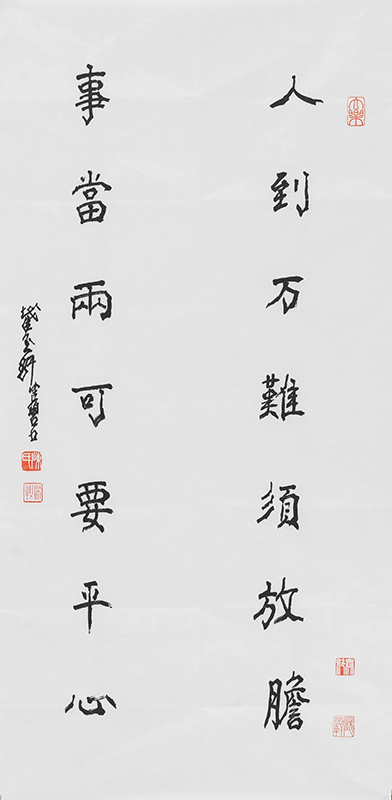 人到万難須放膽
事當兩可要平心